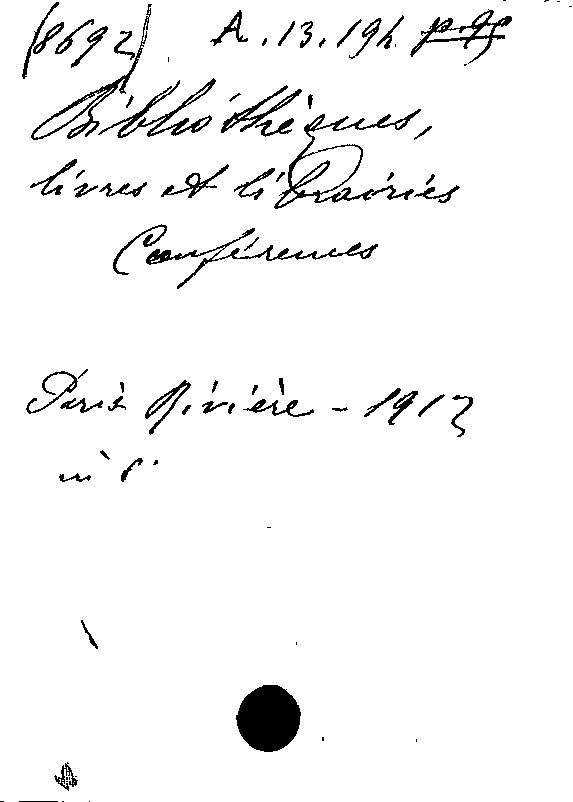 (8692) A.13.194
Bibliothèques,
livres et librairies
Conférences
Paris Rivière - 1912
in 8°